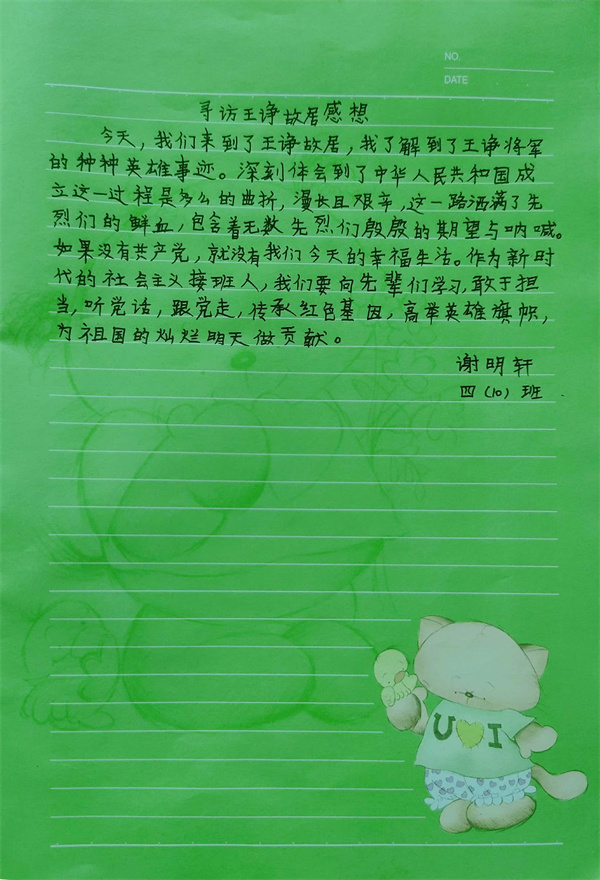 NO.
DATE
寻访王诤故居感想
今天，我们来到了王诤故居，我了解到了王诤将军
的种种英雄事迹。深刻体会到了中华人民共和国成
立这一过程是多么的曲折，漫长且艰辛，这一路洒满了先
烈们的鲜血，包含着无数先烈们殷殷的期望与呐喊。
如果没有共产党，就没有我们今天的幸福生活。作为新时
代的社会主义接班人，我们要向先辈们学习，敢于担
当，听党话，跟党走，传承红色基因，高举英雄旗帜，
为祖国的灿烂明天做贡献。
谢明轩
四（10）班
U I